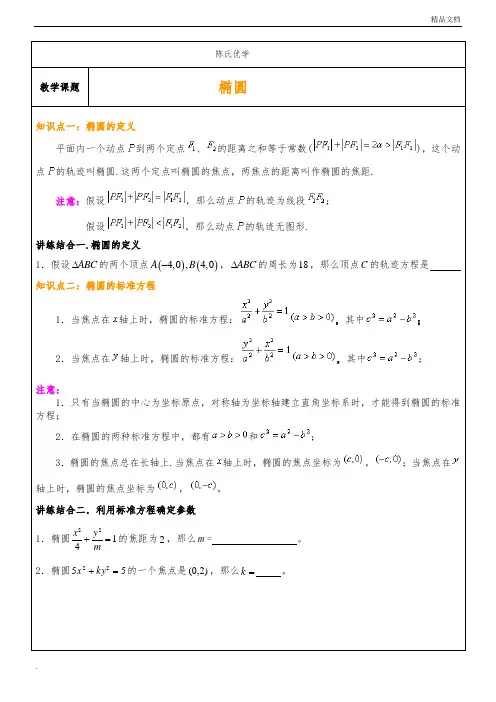 精品文档
陈氏优学
教学课题 椭圆
知识点一：椭圆的定义
平面内一个动点P到两个定点F₁、F₂的距离之和等于常数(|PF₁|+|PF₂|=2a>|F₁F₂|)，这个动
点P的轨迹叫椭圆.这两个定点叫椭圆的焦点，两焦点的距离叫作椭圆的焦距.
注意：假设|PF₁|+|PF₂|=|F₁F₂|，那么动点P的轨迹为线段F₁F₂；
假设|PF₁|+|PF₂|<|F₁F₂|，那么动点P的轨迹无图形.
讲练结合一.椭圆的定义
1．假设ΔABC的两个顶点A(−4,0),B(4,0)，ΔABC的周长为18，那么顶点C的轨迹方程是
知识点二：椭圆的标准方程
1．当焦点在x轴上时，椭圆的标准方程：x²/a²+y²/b²=1(a>b>0)，其中c²=a²−b²；
2．当焦点在y轴上时，椭圆的标准方程：y²/a²+x²/b²=1(a>b>0)，其中c²=a²−b²；
注意：
1．只有当椭圆的中心为坐标原点，对称轴为坐标轴建立直角坐标系时，才能得到椭圆的标准
方程；
2．在椭圆的两种标准方程中，都有a>b>0和c²=a²−b²；
3．椭圆的焦点总在长轴上.当焦点在x轴上时，椭圆的焦点坐标为(c,0)，(−c,0)；当焦点在y
轴上时，椭圆的焦点坐标为(0,c)，(0,−c)。
讲练结合二．利用标准方程确定参数
1．椭圆x²/4+y²/m=1的焦距为2，那么m=　　　　。
2．椭圆5x²+ky²=5的一个焦点是(0,2)，那么k=　　　　。
.